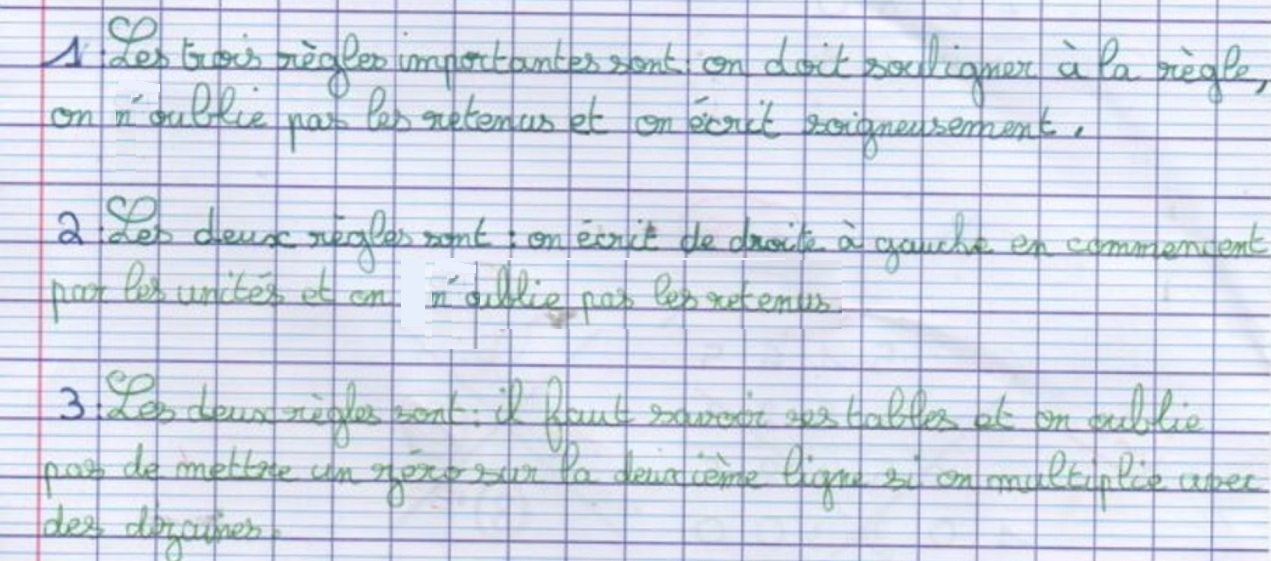 1. Les trois règles importantes sont : on doit souligner à la règle,
on n'oublie pas les retenus et on écrit soigneusement.
2. Les deux règles sont : on écrit de droite à gauche en commencent
par les unités et on n'oublie pas les retenus.
3. Les deux règles sont : il faut savoir ses tables et on oublie
pas de mettre un zéro sur la deuxième ligne si on multiplie avec
des dizaines.